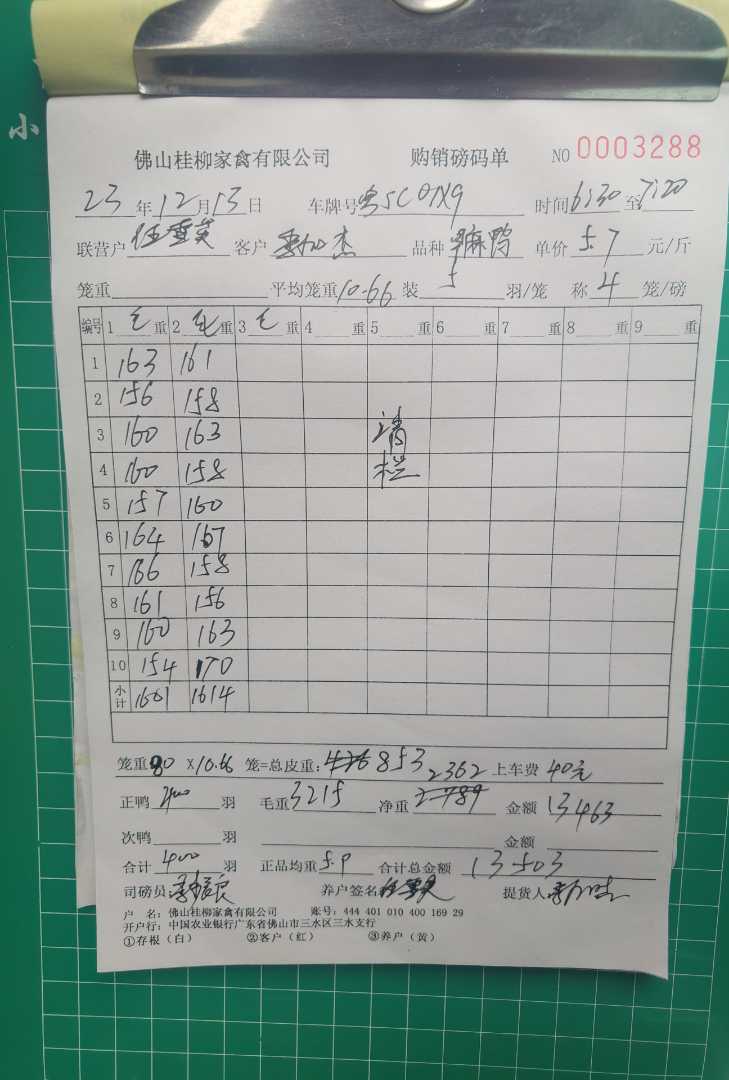 小
佛山桂柳家禽有限公司 购销磅码单 NO 0003288
23年12月13日 车牌号粤SC01X9 时间6:30至7:20
联营户 客户 杰 品种 麻鸭 单价 5.7 元/斤
笼重 平均笼重10.66 装 5 羽/笼 称 4 笼/磅
编号 1 毛重 2 毛重 3 毛重 4 重 5 重 6 重 7 重 8 重 9 重
1 163 161
2 156 158
3 160 163 清
4 160 158 栏
5 157 160
6 164 167
7 166 158
8 161 156
9 160 163
10 154 170
小计 1601 1614
笼重80 X10.66 笼=总皮重: 853 上车费 40元
2362
正鸭 400 羽 毛重3215 净重 2789 金额 13463
次鸭 羽 金额
合计 400 羽 正品均重 5.9 合计总金额 13503
司磅员 养户签名 提货人
户 名:佛山桂柳家禽有限公司 账号:444 401 010 400 169 29
开户行:中国农业银行广东省佛山市三水区三水支行
①存根(白) ②客户(红) ③养户(黄)